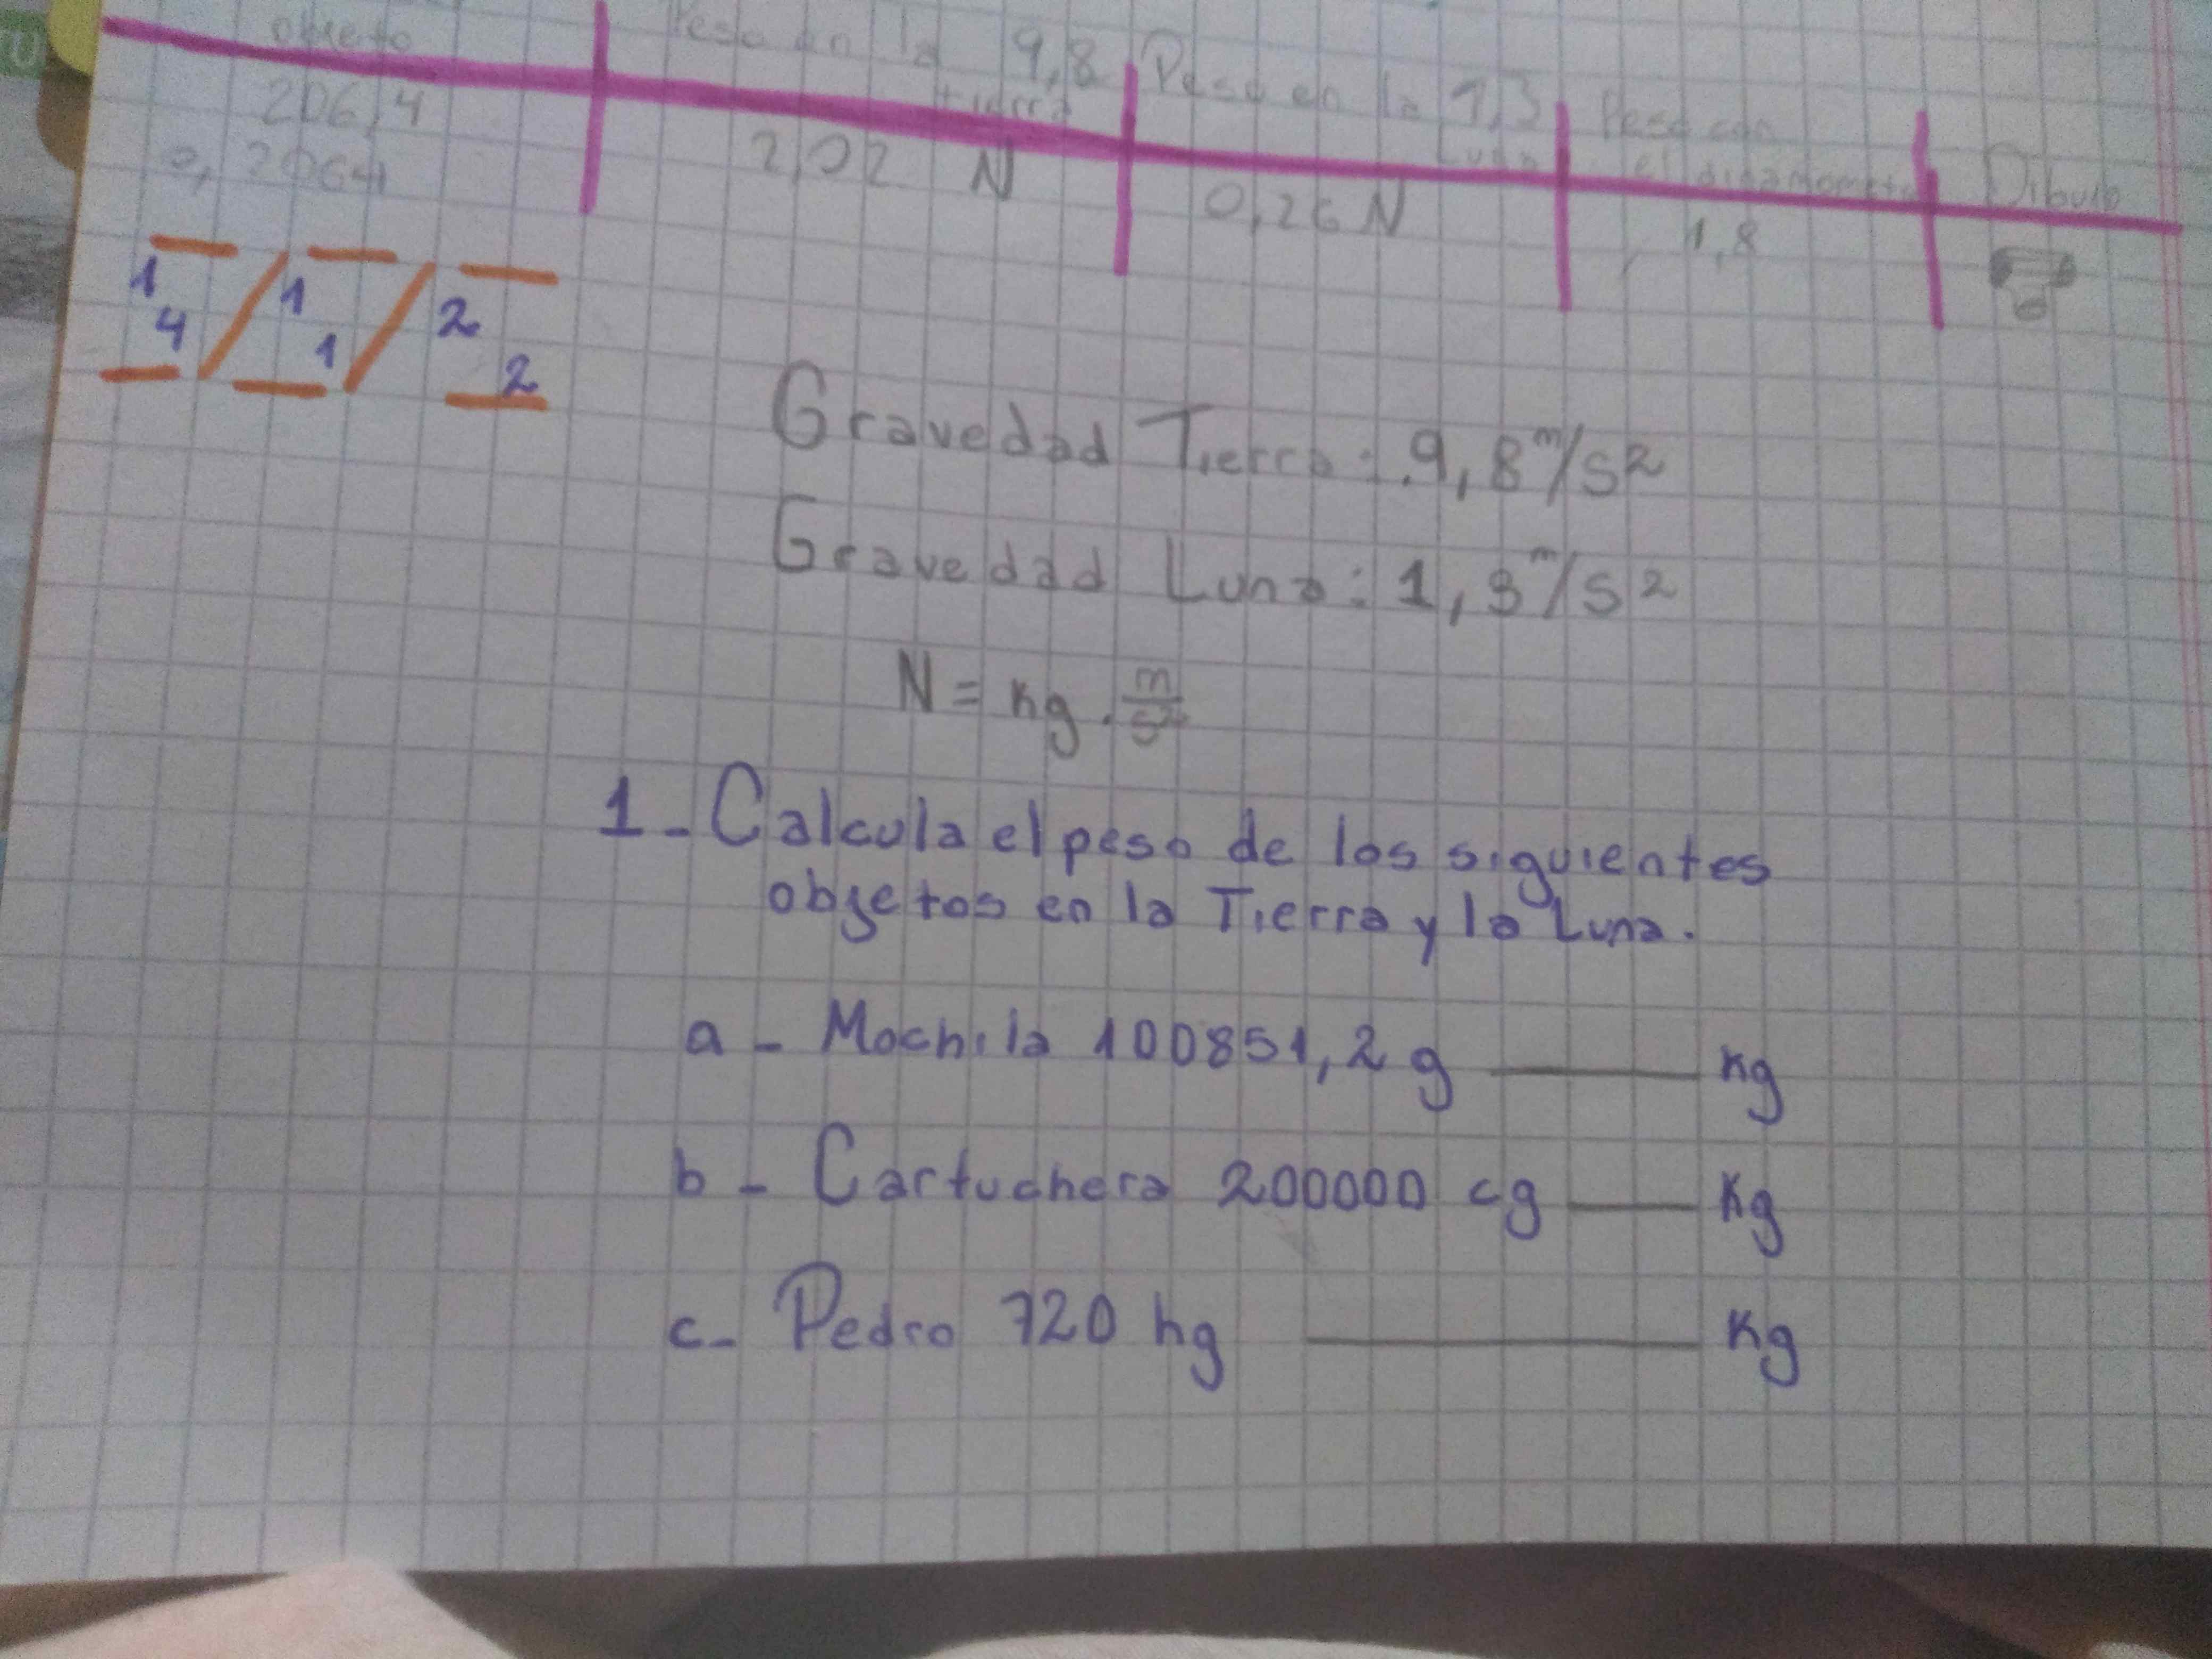 objeto Peso en la 9,8 tierra Peso en la 1,3 Luna Peso con el dinamometro Dibujo
206,4 2,02 N 0,26 N 1,8
0,2064
1 1 2
4 1 2
Gravedad Tierra: 9,8 m/s2
Gravedad Luna: 1,3 m/s2
N = kg . m/s2
1 - Calcula el peso de los siguientes
objetos en la Tierra y la Luna.
a - Mochila 100851,2 g ——— kg
b - Cartuchera 200000 cg —— Kg
c - Pedro 720 hg ——— Kg